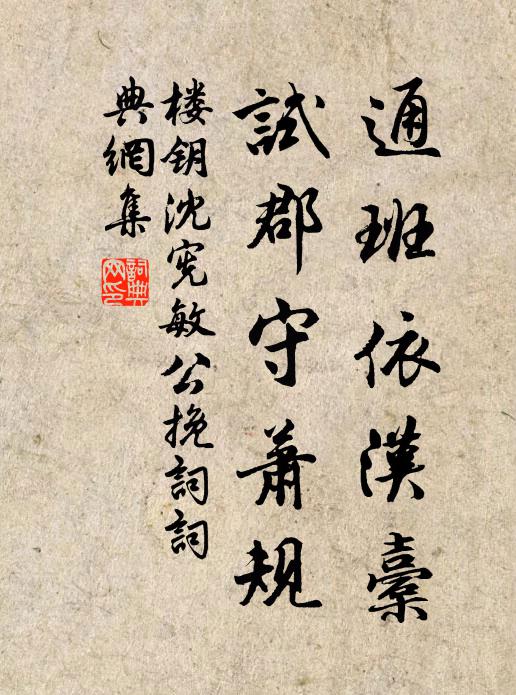 通班依漢橐
試郡守蕭規
楼钥沈宪敏公挽詞詞
典網集
詞典网印